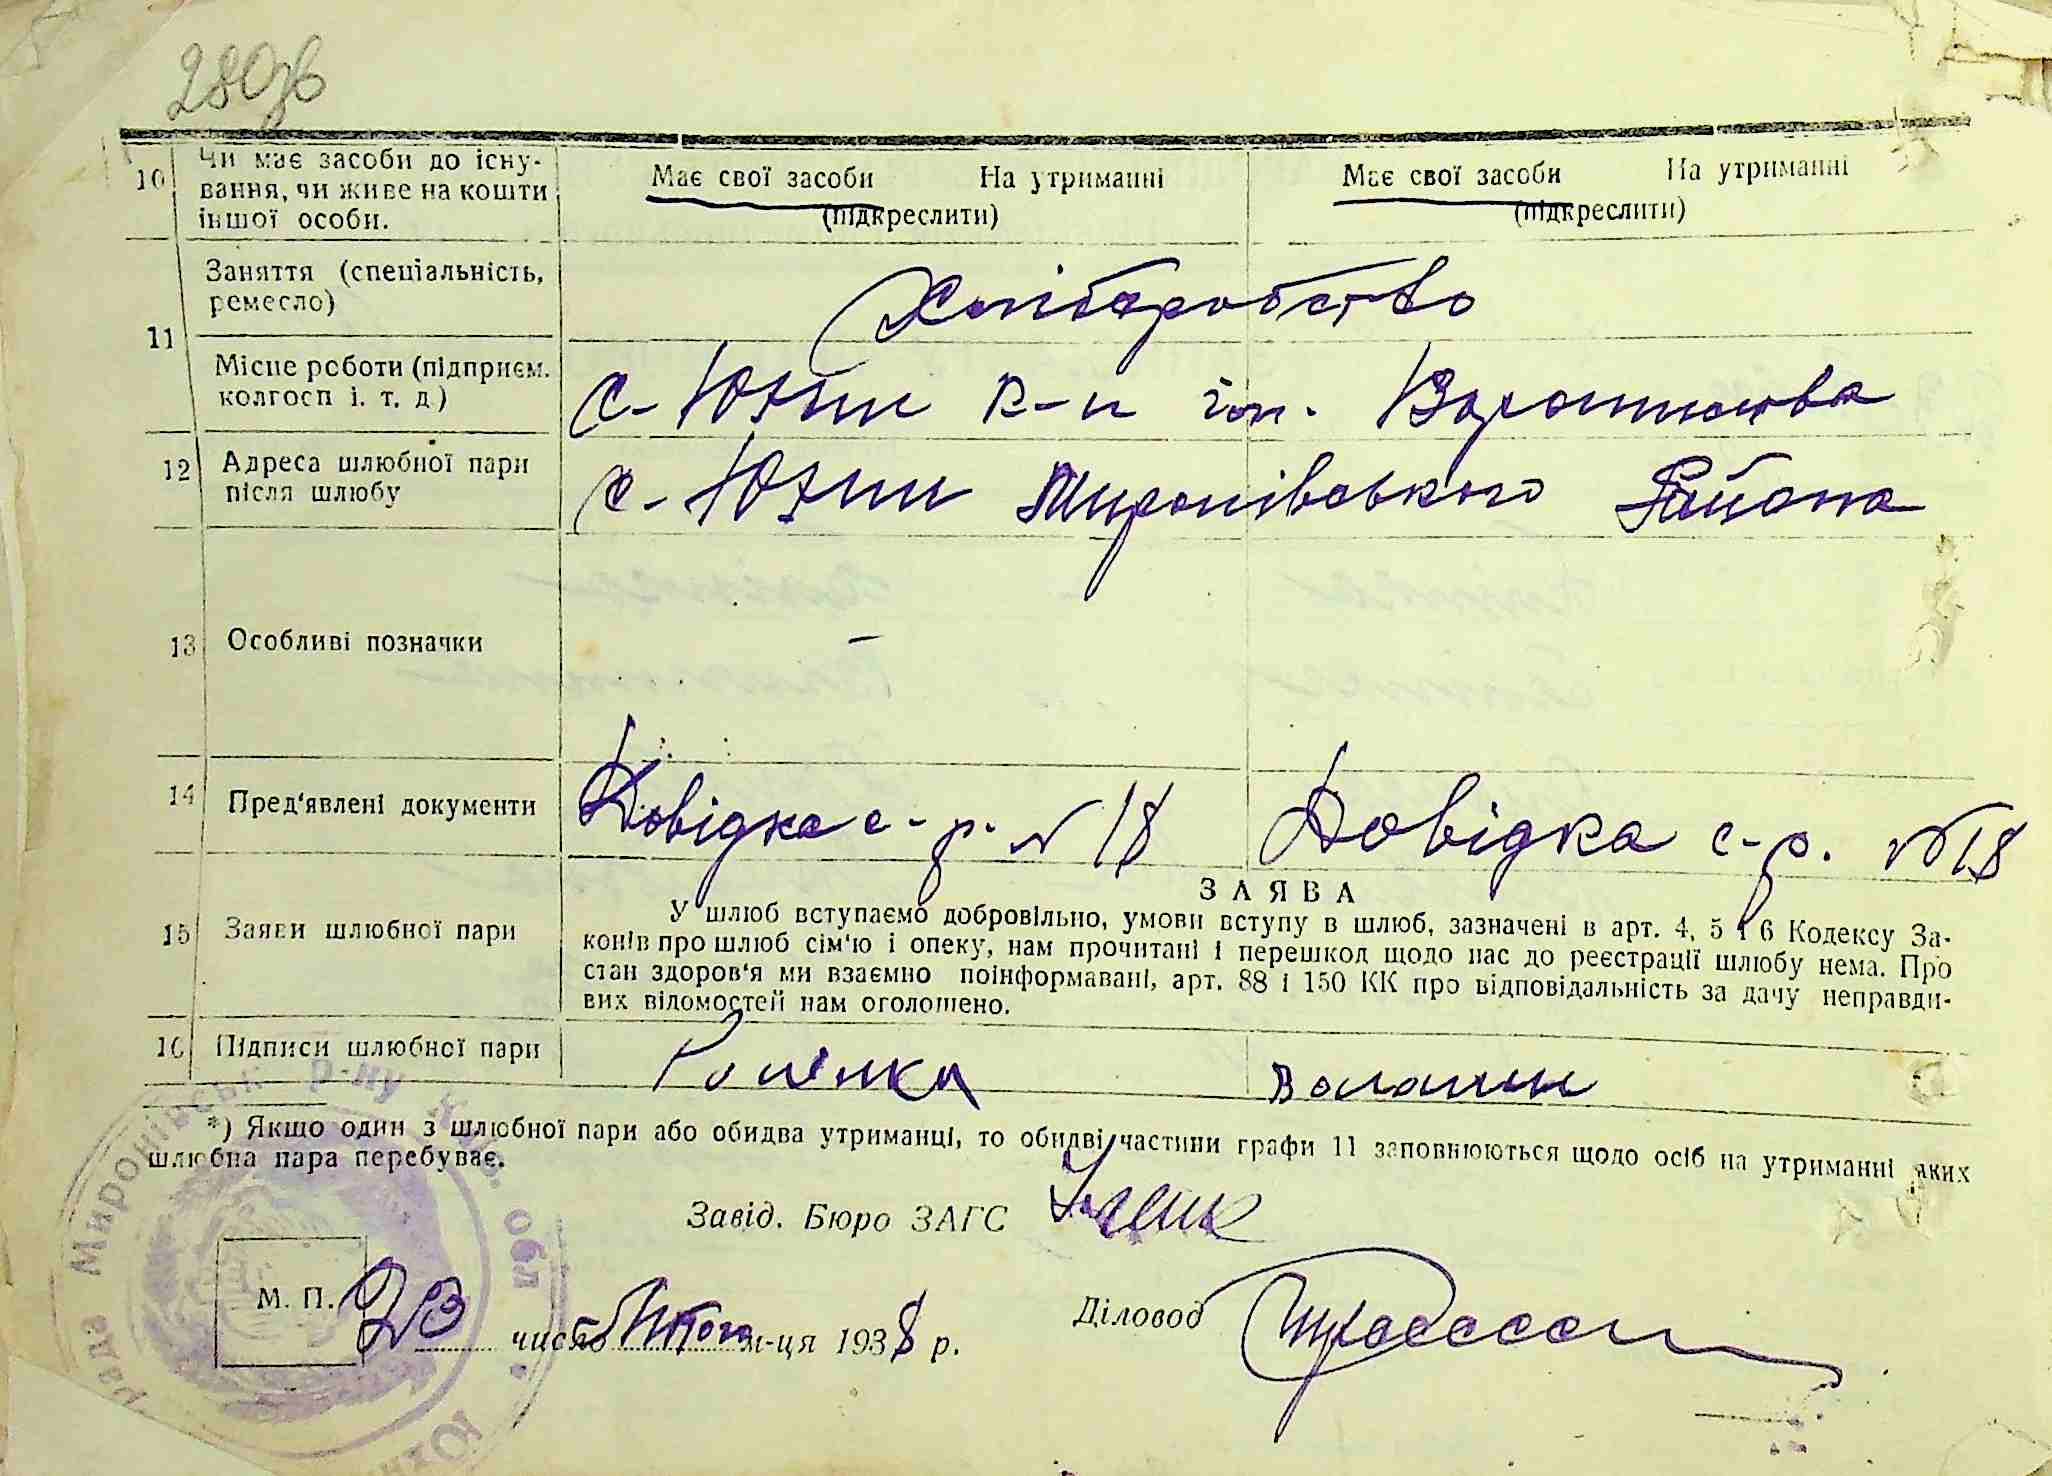 280зв
10 Чи має засоби до існу-
вання, чи живе на кошти
іншої особи.
Має свої засоби На утриманні
(підкреслити)
Має свої засоби На утриманні
(підкреслити)
11 Заняття (спеціальність,
ремесло)
Хліборобство
Місце роботи (підприєм.
колгосп і. т. д)
с-Юхни к-п ім. Ворошилова
12 Адреса шлюбної пари
після шлюбу
с-Юхни Миронівського Района
13 Особливі позначки
–
14 Пред'явлені документи
Довідка с-р. № 18
Довідка с-р. № 18
15 Заяви шлюбної пари
ЗАЯВА
У шлюб вступаємо добровільно, умови вступу в шлюб, зазначені в арт. 4, 5 і 6 Кодексу За-
конів про шлюб сім'ю і опеку, нам прочитані і перешкод щодо нас до реєстрації шлюбу нема. Про
стан здоров'я ми взаємно поінформавані, арт. 88 і 150 КК про відповідальність за дачу неправди-
вих відомостей нам оголошено.
16 Підписи шлюбної пари
*) Якщо один з шлюбної пари або обидва утриманці, то обидві частини графи 11 заповнюються щодо осіб на утриманні яких
шлюбна пара перебуває.
Завід. Бюро ЗАГС
М. П. 23 число Лютого м-ця 1938 р.
Діловод
рада Миронівськ р-ну обл